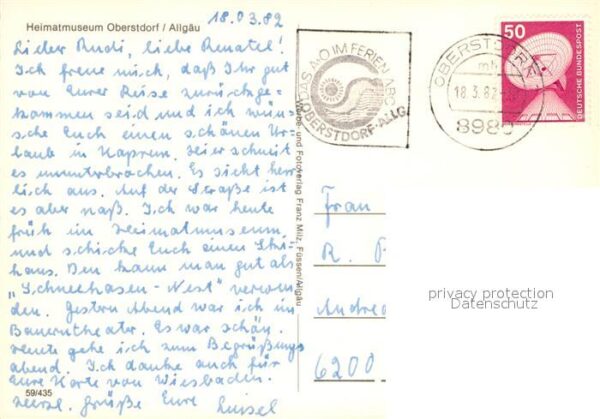 18.03.82
Heimatmuseum Oberstdorf / Allgäu
Lieber Rudi, liebe Renatel!
Ich freue mich, daß Ihr gut
von Eurer Reise zurückge-
kommen seid und ich wün-
sche Euch einen schönen Ur-
laub in Kaprun. Hier schneit
es ununterbrochen. Es sieht herr-
lich aus. Auf der Straße ist
es aber naß. Ich war heute
früh im Heimatmuseum
und schicke Euch einen Ski-
haus. Den kann man gut als
"Schneehasen-Nest" verwen-
den. Gestern Abend war ich im
Bauerntheater. Es war schön.
Heute gehe ich zum Begrüßungs
abend. Ich danke auch für
Eure Karte von Wiesbaden.
Herzl. Grüße Eure Luisel
59/435
und Fotoverlag Franz Milz, Füssen/Allgäu
DAS A+O IM FERIEN ABC
OBERSTDORF-ALLG.
OBERSTDORF
mh
18.3.82
8980
50
DEUTSCHE BUNDESPOST
Frau
R.
6200
privacy protection
Datenschutz